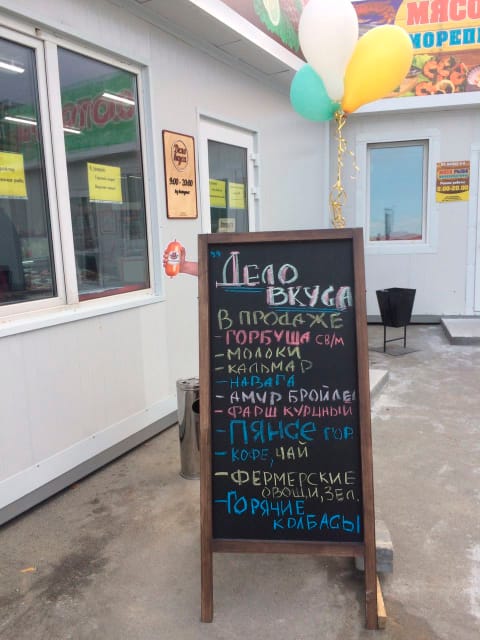 МЯСО
МОРЕПР
Дело
вкуса
9:00-20:00
" Дело
вкуса
В ПРОДАЖЕ
- ГОРБУША СВ/М
- МОЛОКИ
- КАЛЬМАР
- НАВАГА
- АМУР БРОЙЛЕР
- ФАРШ КУРИНЫЙ
- ПЯНСЕ ГОР.
- КОФЕ, ЧАЙ
- ФЕРМЕРСКИЕ
ОВОЩИ, ЗЕЛ.
- ГОРЯЧИЕ
КОЛБАСЫ